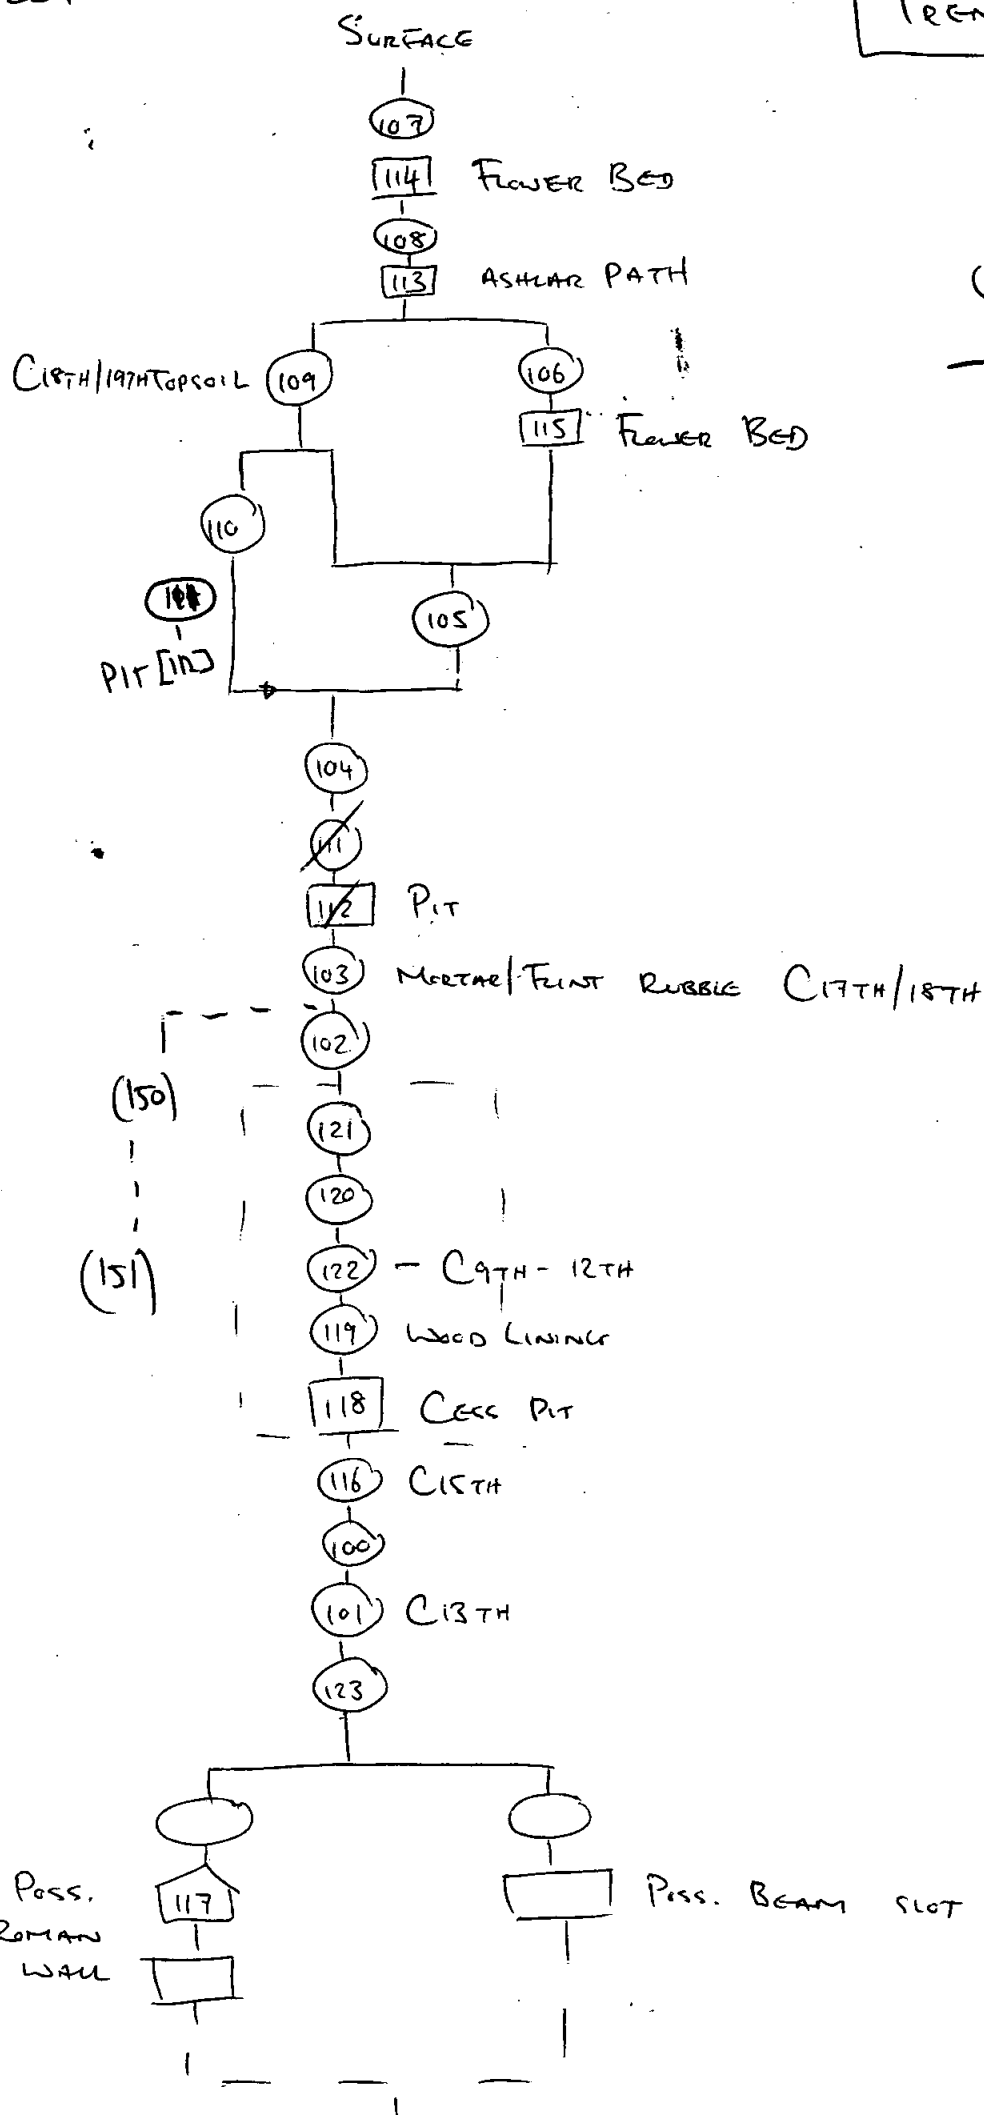 SURFACE
107
114 FLOWER BED
108
113 ASHLAR PATH
C18TH/19TH TOPSOIL 109 106
115 FLOWER BED
110
105
PIT
104
111
112 PIT
103 MORTAR/FLINT RUBBLE C17TH/18TH
102
(150)
121
120
(151) 122 - C9TH - 12TH
119 WOOD LINING
118 CESS PIT
116 C15TH
100
101 C13TH
123
POSS. 117 POSS. BEAM SLOT
ROMAN
WALL